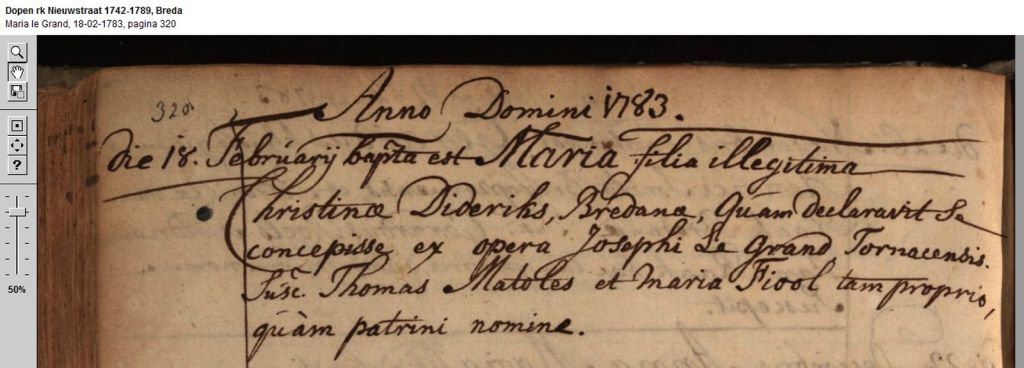 Dopen rk Nieuwstraat 1742-1789, Breda
Maria le Grand, 18-02-1783, pagina 320
320
Anno Domini 1783.
die 18. Februarij bapta est Maria filia illegitima
Christinæ Dideriks, Bredanæ, Quam declaravit se
concepisse ex opera Josephi Le Grand Tornacensis.
Susc. Thomas Matoles et Maria Fiool, tam proprio,
quàm patrini nomine.
?
50%